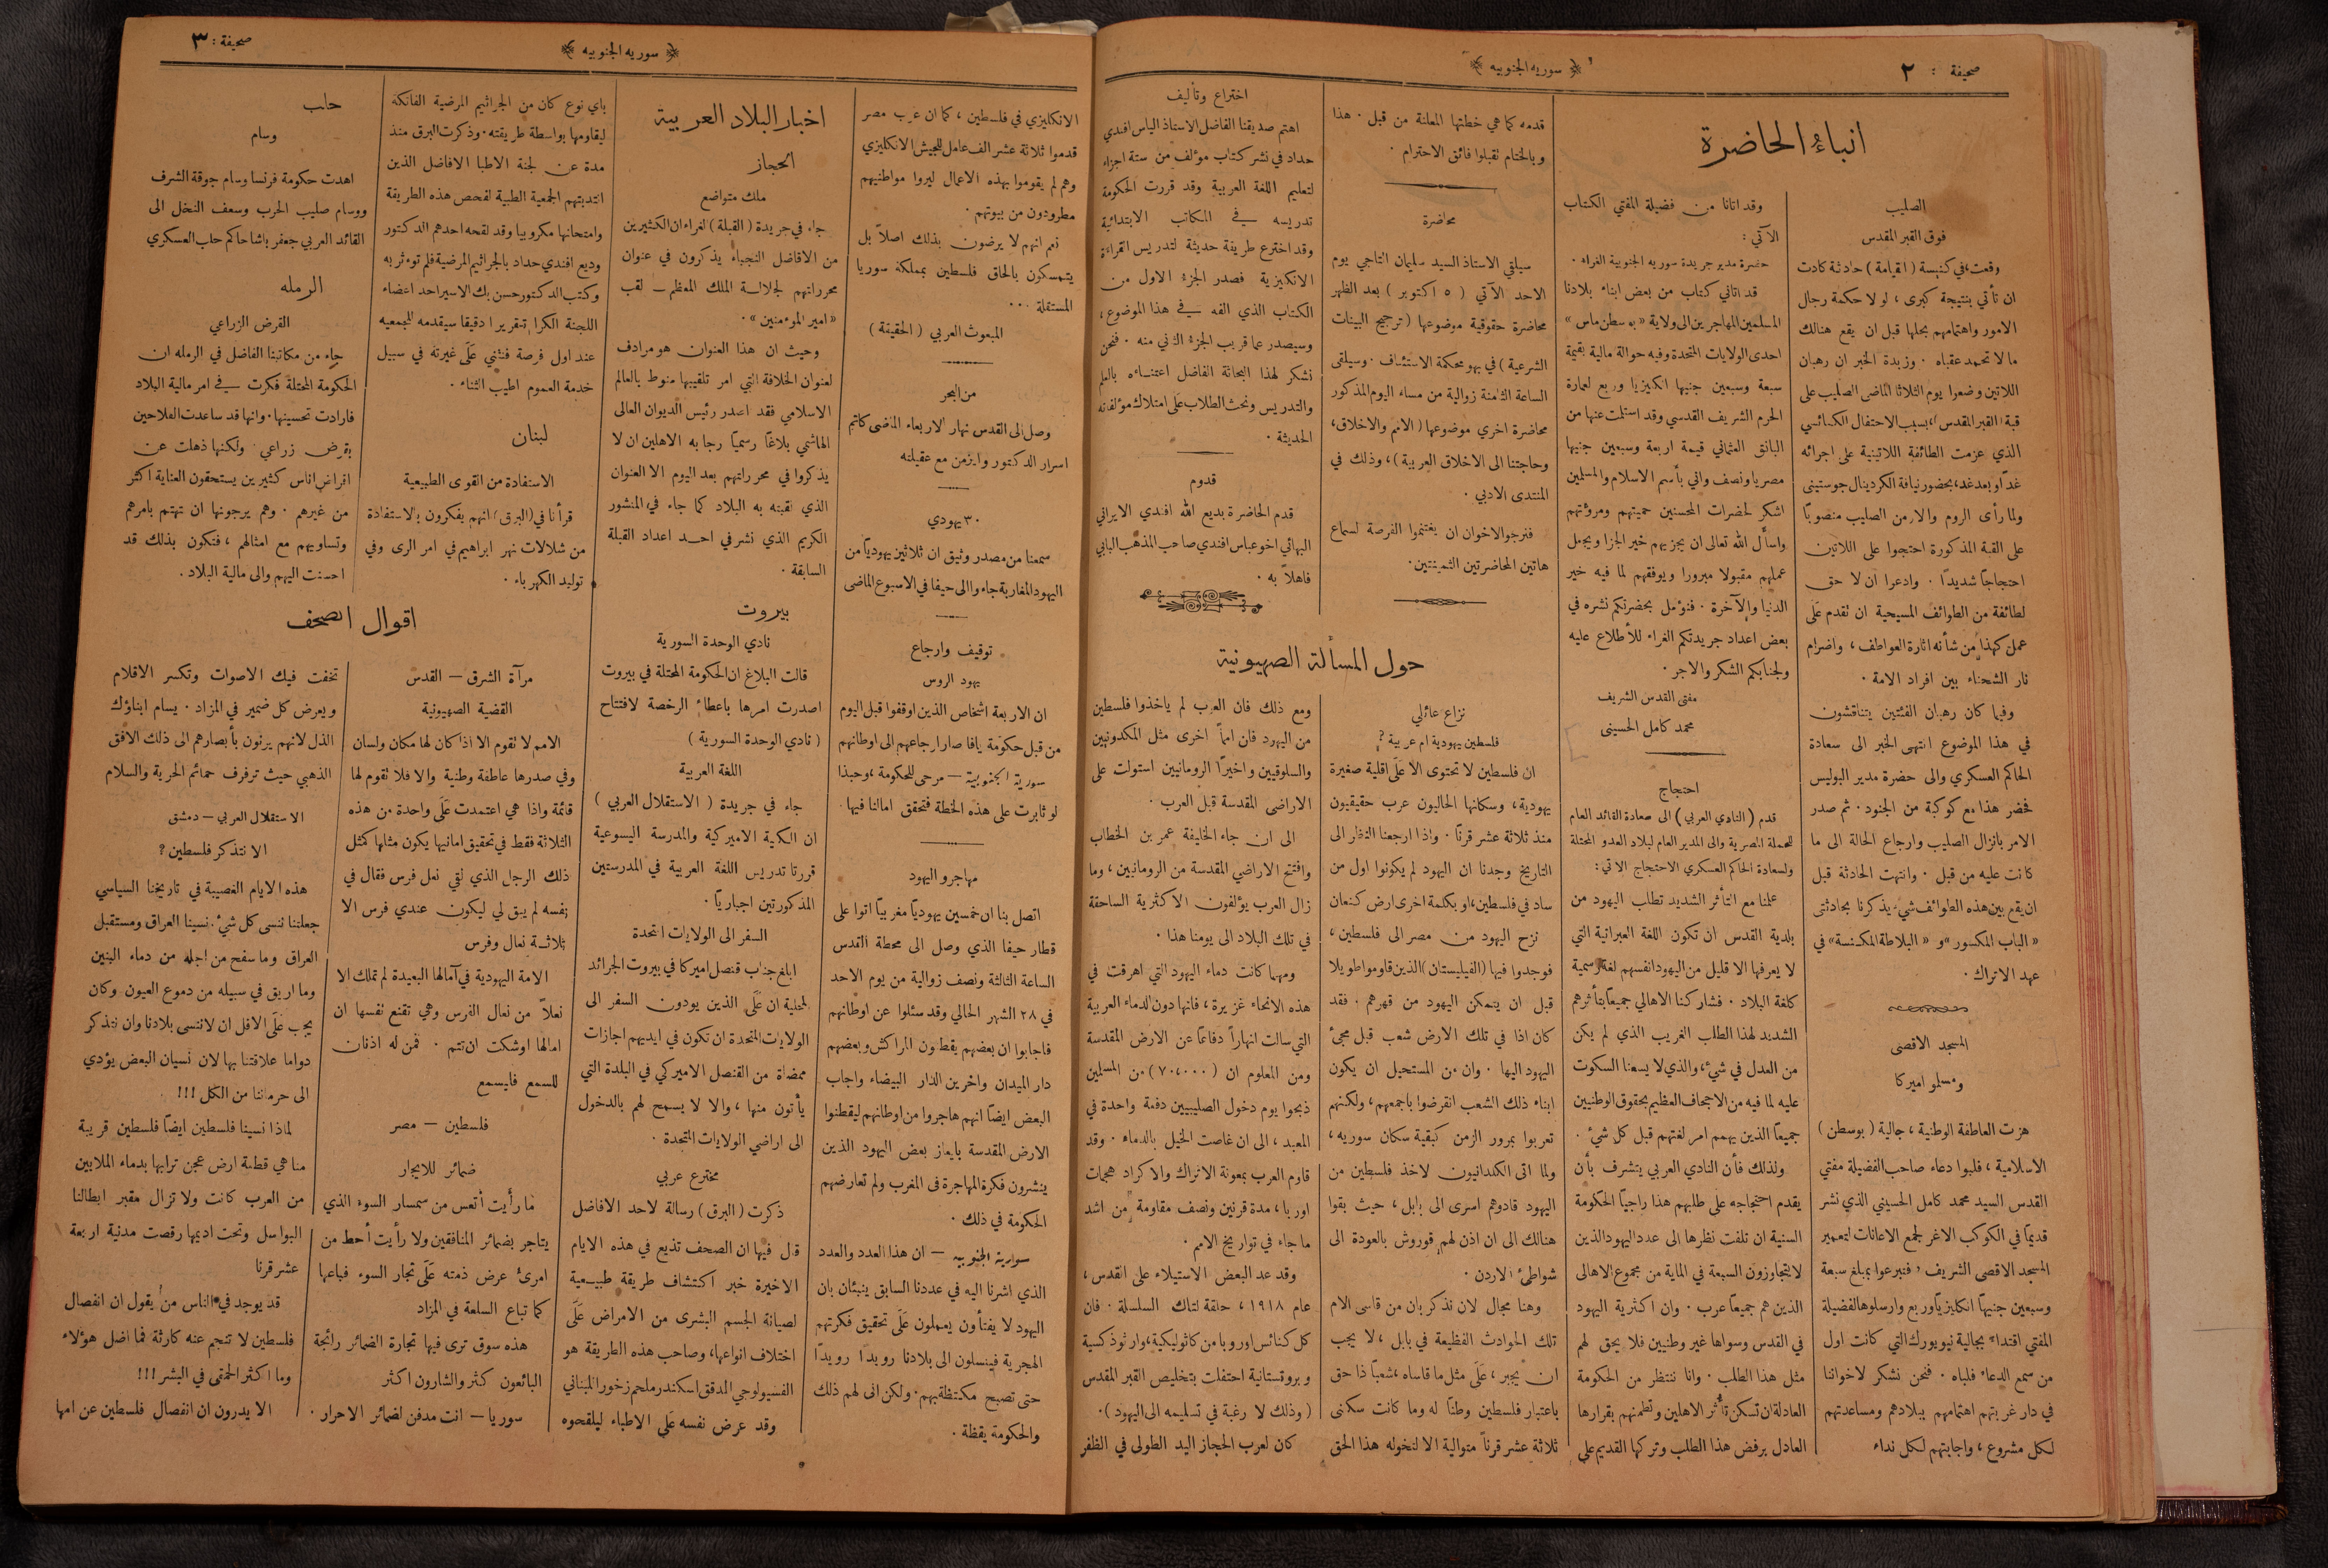 صحيفة : ٢
﴿ سوريه الجنوبيه ﴾
انباء الحاضرة
الصليب
فوق القبر المقدس
وقعت في كنيسة ( القيامة ) حادثة كادت
ان تأتي بنتيجة كبرى ، لولا حكمة رجال
الامور واهتمامهم بحلها قبل ان يقع هنالك
ما لا تحمد عقباه . وزبدة الخبر ان رهبان
اللاتين وضعوا يوم الثلاثا الماضى الصليب على
قبة القبر المقدس بسبب الاحتفال الكنائسي
الذي عزمت الطائفة اللاتينية على اجرائه
غداً او بعد غد، بحضور نيافة الكردينال جوستيني
ولما رأى الروم والارمن الصليب منصوبًا
على القبة المذكورة احتجوا على اللاتين
احتجاجًا شديدًا . وادعوا ان لا حق
لطائفة من الطوائف المسيحية ان تقدم عَلَى
عمل كهذا من شأنه اثارة العواطف ، واضرام
نار الشحناء بين افراد الامة .
وفيما كان رهبان الفئتين يتناقشون
في هذا الموضوع انتهى الخبر الى سعادة
الحاكم العسكري والى حضرة مدير البوليس
فحضر هذا مع كوكبة من الجنود . ثم صدر
الامر بانزال الصليب وارجاع الحالة الى ما
كانت عليه من قبل . وانتهت الحادثة قبل
ان يقع بين هذه الطوائف شيء يذكرنا بحادثتى
« الباب المكسور » و « البلاطة المكنسة » في
عهد الاتراك .
المسجد الاقصى
ومسلمو اميركا
هزت العاطفة الوطنية ، جالية ( بوسطن )
الاسلامية ، فلبوا دعاء صاحب الفضيلة مفتي
القدس السيد محمد كامل الحسيني الذي نشر
قديمًا في الكوكب الاغر لجمع الاعانات لتعمير
المسجد الاقصى الشريف ، فتبرعوا بمبلغ سبعة
وسبعين جنيهًا انكليزيًا وربع وارسلوها لفضيلة
المفتي اقتداء بجالية نيويورك التي كانت اول
من سمع الدعاء فلباه . فنحن نشكر لاخواننا
في دار غربتهم اهتمامهم ببلادهم ومساعدتهم
لكل مشروع ، واجابتهم لكل نداء
وقد اتانا من فضيلة المفتي الكتاب
الآتي :
حضرة مدير جريدة سوريه الجنوبية الغراء .
قد اتاني كتاب من بعض ابناء بلادنا
المسلمين المهاجرين الى ولاية « بوسطن ماس »
احدى الولايات المتحدة وفيه حوالة مالية بقيمة
سبعة وسبعين جنيها انكليزيا وربع لعمارة
الحرم الشريف القدسي وقد استلمت عنها من
البانق العثماني قيمة اربعة وسبعين جنيها
مصريا ونصف واني بأسم الاسلام والمسلمين
اشكر لحضرات المحسنين حميتهم ومروئتهم
واسأل الله تعالى ان يجزيهم خير الجزا ويجعل
عملهم مقبولا مبرورا ويوفقهم لما فيه خير
الدنيا والآخرة . فنؤمل بحضرتكم نشره في
بعض اعداد جريدتكم الغراء للأطلاع عليه
ولجنابكم الشكر والاجر .
مفتى القدس الشريف
محمد كامل الحسينى
احتجاج
قدم ( النادي العربي ) الى سعادة القائد العام
للحملة المصرية والى المدير العام لبلاد العدو المحتلة
ولسعادة الحاكم العسكري الاحتجاج الاتي :
علمنا مع التأثر الشديد تطلب اليهود من
بلدية القدس ان تكون اللغة العبرانية التي
لا يعرفها الا قليل من اليهود انفسهم لغة رسمية
كلغة البلاد . فشاركنا الاهالي جميعًا بتأثرهم
الشديد لهذا الطلب الغريب الذي لم يكن
من العدل في شيء ، والذي لا يسعنا السكوت
عليه لما فيه من الاجحاف العظيم بحقوق الوطنيين
جميعًا الذين يهمهم امر لغتهم قبل كل شيء .
ولذلك فأن النادي العربي يتشرف بأن
يقدم احتجاجه على طلبهم هذا راجيًا الحكومة
السنية ان تلفت نظرها الى عدد اليهود الذين
لا يتجاوزون السبعة في المائة من مجموع الاهالى
الذين هم جميعًا عرب . وان اكثرية اليهود
في القدس وسواها غير وطنيين فلا يحق لهم
مثل هذا الطلب . وانا ننتظر من الحكومة
العادلة ان تسكن تأثر الاهلين وتطمنهم بقرارها
العادل برفض هذا الطلب وتركها القديم على
قدمه كما هي خطتها المعلنة من قبل . هذا
وبالختام تقبلوا فائق الاحترام .
محاضرة
سيلقي الاستاذ السيد سليمان التاجي يوم
الاحد الآتي ( ٥ اكتوبر ) بعد الظهر
محاضرة حقوقية موضوعها ( ترجيح البينات
الشرعية ) في بهو محكمة الاستئناف . وسيلقى
الساعة الثامنة زوالية من مساء اليوم المذكور
محاضرة اخرى موضوعها ( الامم والاخلاق،
وحاجتنا الى الاخلاق العربية ) ، وذلك في
المنتدى الادبي .
فنرجو الاخوان ان يغتنموا الفرصة لسماع
هاتين المحاضرتين الثمينتين .
اختراع وتأليف
اهتم صديقنا الفاضل الاستاذ الياس افندي
حداد في نشر كتاب مؤلف من ستة اجزاء
لتعليم اللغة العربية وقد قررت الحكومة
تدريسه في المكاتب الابتدائية
وقد اخترع طريقة حديثة لتدريس القراءة
الانكليزية فصدر الجزء الاول من
الكتاب الذي الفه في هذا الموضوع ،
وسيصدر عما قريب الجزء الثاني منه . فنحن
نشكر لهذا البحاثة الفاضل اعتنــاءه بالعلم
والتدريس ونحث الطلاب عَلَى امتلاك مؤلفاته
الحديثة .
قدوم
قدم الحاضرة بديع الله افندي الايراني
البهائي اخو عباس افندي صاحب المذهب البابي
فاهلاً به .
حول المسألة الصهيونية
نزاع عائلي
فلسطين يهودية ام عربية ؟
ان فلسطين لا تحتوى الا عَلَى اقلية صغيرة
يهودية ، وسكانها الحاليون عرب حقيقيون
منذ ثلاثة عشر قرنًا . واذا ارجعنا النظر الى
التاريخ وجدنا ان اليهود لم يكونوا اول من
ساد في فلسطين ، او بكلمة اخرى ارض كنعان
نزح اليهود من مصر الى فلسطين ،
فوجدوا فيها ( الفيليستان ) الذين قاوموا طويلا
قبل ان يتمكن اليهود من قهرهم . فقد
كان اذا في تلك الارض شعب قبل مجئ
اليهود اليها . وان من المستحيل ان يكون
ابناء ذلك الشعب انقرضوا باجمعهم ، ولكنهم
تعربوا بمرور الزمن كبقية سكان سوريه ،
ولما اتى الكلدانيون لاخذ فلسطين من
اليهود قادوهم اسرى الى بابل ، حيث بقوا
هنالك الى ان اذن لهم قوروش بالعودة الى
شواطئ الاردن .
وهنا مجال لان نذكر بان من قاسى الام
تلك الحوادث الفظيعة في بابل ، لا يجب
ان يجبر ، عَلَى مثل ما قاساه ، شعبًا ذا حق
باعتبار فلسطين وطنًا له وما كانت سكنى
ثلاثة عشر قرناً متوالية الا لتخوله هذا الحق
ومع ذلك فان العرب لم ياخذوا فلسطين
من اليهود فان امماً اخرى مثل المكدونيين
والسلوقيين واخيرًا الرومانيين استولت على
الاراضى المقدسة قبل العرب .
الى ان جاء الخليفة عمر بن الخطاب
وافتتح الاراضي المقدسة من الرومانيين ، وما
زال العرب يؤلفون الاكثرية الساحقة
في تلك البلاد الى يومنا هذا .
ومهما كانت دماء اليهود التي اهرقت في
هذه الانحاء غزيرة ، فانها دون الدماء العربية
التي سالت انهاراً دفاعًا عن الارض المقدسة
ومن المعلوم ان ( ٧٠،٠٠٠ ) من المسلمين
ذبحوا يوم دخول الصليبيين دفعة واحدة في
المعبد ، الى ان غاصت الخيل بالدماء . وقد
قاوم العرب بمعونة الاتراك والاكراد هجمات
اوربا ، مدة قرنين ونصف مقاومة من اشد
ما جاء في تواريخ الامم .
وقد عد البعض الاستيلاء على القدس ،
عام ١٩١٨ ، حلقة لتلك السلسلة . فان
كل كنائس اوروبا من كاثوليكية ، وارثوذكسية
وبروتستانية احتفلت بتخليص القبر المقدس
( وذلك لا رغبة في تسليمه الى اليهود ) .
كان لعرب الحجاز اليد الطولى في الظفر
صحيفة : ٣
﴿ سوريه الجنوبيه ﴾
الانكليزي في فلسطين ، كما ان عرب مصر
قدموا ثلاثة عشر الف عامل للجيش الانكليزي
وهم لم يقوموا بهذه الاعمال ليروا مواطنيهم
مطرودون من بيوتهم .
نعم انهم لا يرضون بذلك اصلاً بل
يتمسكون بالحاق فلسطين بمملكة سوريا
المستقلة ...
المبعوث العربي ( الحقيقة )
من البحر
وصل الى القدس نهار الاربعاء الماضى كاتم
اسرار الدكتور وايزمن مع عقيلته
٣٠ يهودي
سمعنا من مصدر وثيق ان ثلاثين يهودياً من
اليهود المغاربة جاءوا الى حيفا في الاسبوع الماضى
توقيف وارجاع
يهود الروس
ان الاربعة اشخاص الذين اوقفوا قبل اليوم
من قبل حكومة يافا صار ارجاعهم الى اوطانهم
سورية الجنوبية – مرحى للحكومة ، وحبذا
لو ثابرت على هذه الخطة فتحقق امالنا فيها .
مهاجرو اليهود
اتصل بنا ان خمسين يهوديًا مغربيًا اتوا على
قطار حيفا الذي وصل الى محطة القدس
الساعة الثالثة ونصف زوالية من يوم الاحد
في ٢٨ الشهر الحالي وقد سئلوا عن اوطانهم
فاجابوا ان بعضهم يقطون المراكش وبعضهم
دار الميدان واخرين الدار البيضاء واجاب
البعض ايضًا انهم هاجروا من اوطانهم ليقطنوا
الارض المقدسة بايعاز بعض اليهود الذين
ينشرون فكرة المهاجرة فى المغرب ولم تعارضهم
الحكومة في ذلك .
سورية الجنوبيه – ان هذا العدد والعدد
الذي اشرنا اليه في عددنا السابق ينبئان بان
اليهود لا يفتأون يعملون عَلَى تحقيق فكرتهم
الهجرية فينسلون الى بلادنا رويدًا رويدًا
حتى تصبح مكتظة بهم . ولكن انى لهم ذلك
والحكومة يقظة .
اخبار البلاد العربية
الحجاز
ملك متواضع
جاء في جريدة ( القبلة ) الغراء ان الكثيرين
من الافاضل النجباء يذكرون في عنوان
محرراتهم لجلالــة الملك المعظم ــ لقب
« امير المؤمنين » .
وحيث ان هذا العنوان هو مرادف
لعنوان الخلافة التي امر تلقيبها منوط بالعالم
الاسلامي فقد اصدر رئيس الديوان العالى
الهاشمي بلاغًا رسميًا رجا به الاهلين ان لا
يذكروا في محرراتهم بعد اليوم الا العنوان
الذي لقبته به البلاد كما جاء في المنشور
الكريم الذي نشر في احــد اعداد القبلة
السابقة .
بيروت
نادي الوحدة السورية
قالت البلاغ ان الحكومة المحتلة في بيروت
اصدرت امرها باعطاء الرخصة لافتتاح
( نادي الوحدة السورية )
اللغة العربية
جاء في جريدة ( الاستقلال العربي )
ان الكلية الاميركية والمدرسة اليسوعية
قررتا تدريس اللغة العربية في المدرستين
المذكورتين اجباريًا .
السفر الى الولايات المتحدة
ابلغ جناب قنصل اميركا في بيروت الجرائد
المحلية ان عَلَى الذين يودون السفر الى
الولايات المتحدة ان تكون في ايديهم اجازات
ممضاة من القنصل الاميركي في البلدة التي
يأتون منها ، والا لا يسمح لهم بالدخول
الى اراضي الولايات المتحدة .
مخترع عربي
ذكرت ( البرق ) رسالة لاحد الافاضل
قال فيها ان الصحف تذيع في هذه الايام
الاخيرة خبر اكتشاف طريقة طبيــعية
لصيانة الجسم البشرى من الامراض عَلَى
اختلاف انواعها ، وصاحب هذه الطريقة هو
الفسيولوجي المدقق اسكندر ملحم زخور اللبناني
وقد عرض نفسه عَلَى الاطباء ليلقحوه
باي نوع كان من الجراثيم المرضية الفاتكة
ليقاومها بواسطة طريقته . وذكرت البرق منذ
مدة عن لجنة الاطبا الافاضل الذين
انتدبتهم الجمعية الطبية لفحص هذه الطريقة
وامتحانها مكروبيا وقد لقحه احدهم الدكتور
وديع افندي حداد بالجراثيم المرضية فلم تؤثر به
وكتب الدكتور حسن بك الاسير احد اعضاء
اللجنة الكرام تقريرا دقيقا سيقدمه للجمعيه
عند اول فرصة فنثني عَلَى غيرته في سبيل
خدمة العموم اطيب الثناء .
لبنان
الاستفادة من القوى الطبيعية
قرأنا في ( البرق ) انهم يفكرون بالاستفادة
من شلالات نهر ابراهيم في امر الرى وفي
توليد الكهرباء .
حلب
وسام
اهدت حكومة فرنسا وسام جوقة الشرف
ووسام صليب الحرب وسعف النخل الى
القائد العربي جعفر باشا حاكم حلب العسكري
الرمله
القرض الزراعي
جاء من مكاتبنا الفاضل في الرمله ان
الحكومة المحتلة فكرت في امر مالية البلاد
فارادت تحسينها . وانها قد ساعدت الفلاحين
بقرض زراعي . ولكنها ذهلت عن
اقراض اناس كثيرين يستحقون العناية اكثر
من غيرهم . وهم يرجونها ان تهتم بامرهم
وتساويهم مع امثالهم ، فتكون بذلك قد
احسنت اليهم والى مالية البلاد .
اقوال الصحف
مرآة الشرق – القدس
القضية الصهيونية
الامم لا تقوم الا اذا كان لها مكان ولسان
وفي صدرها عاطفة وطنية والا فلا تقوم لها
قائمة واذا هي اعتمدت عَلَى واحدة من هذه
الثلاثة فقط في تحقيق امانيها يكون مثلها كمثل
ذلك الرجل الذي لقي نعل فرس فقال في
نفسه لم يبق لي ليكون عندي فرس الا
ثلاثــة نعال وفرس
الامة اليهودية في آمالها البعيدة لم تملك الا
نعلاً من نعال الفرس وهي تقنع نفسها ان
امالها اوشكت ان تتم . فمن له اذنان
للسمع فليسمع
فلسطين – مصر
ضمائر للايجار
ما رأيت أتعس من سمسار السوء الذي
يتاجر بضمائر المنافقين ولا رأيت أحط من
امرئ عرض ذمته عَلَى تجار السوء فباعها
كما تباع السلعة في المزاد
هذه سوق ترى فيها تجارة الضمائر رائجة
البائعون كثر والشارون اكثر
سوريا – انت مدفن لضمائر الاحرار .
تخفت فيك الاصوات وتكسر الاقلام
ويعرض كل ضمير في المزاد . يسام ابناؤك
الذل لانهم يرنون بأبصارهم الى ذلك الافق
الذهبي حيث ترفرف حمائم الحرية والسلام
الاستقلال العربي – دمشق
الا نتذكر فلسطين ؟
هذه الايام العصيبة في تاريخنا السياسي
جعلتنا ننسى كل شيء . نسينا العراق ومستقبل
العراق وما سفح من اجله من دماء البنين
وما اريق في سبيله من دموع العيون وكان
يجب عَلَى الاقل ان لا ننسى بلادنا وان نتذكر
دواما علاقتنا بها لان نسيان البعض يؤدي
الى حرماننا من الكل !!!
لماذا نسينا فلسطين ايضًا فلسطين قريبة
منا هي قطعة ارض عجن ترابها بدماء الملايين
من العرب كانت ولا تزال مقبر ابطالنا
البواسل وتحت اديمها رقصت مدنية اربعة
عشر قرنا
قد يوجد في الناس من يقول ان انفصال
فلسطين لا تنجم عنه كارثة فما اضل هؤلاء
وما اكثر الحمقى في البشر !!!
الا يدرون ان انفصال فلسطين عن امها